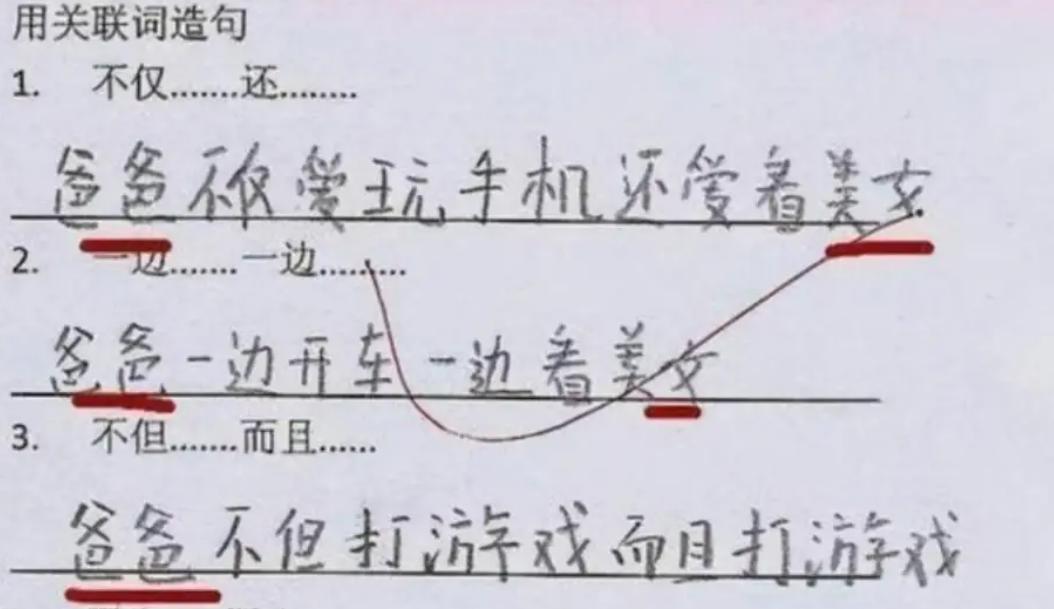 用关联词造句
1. 不仅.......还........
爸爸不仅爱玩手机还爱看美女
2. 一边.......一边.........
爸爸一边开车一边看美女
3. 不但.......而且......
爸爸不但打游戏而且打游戏